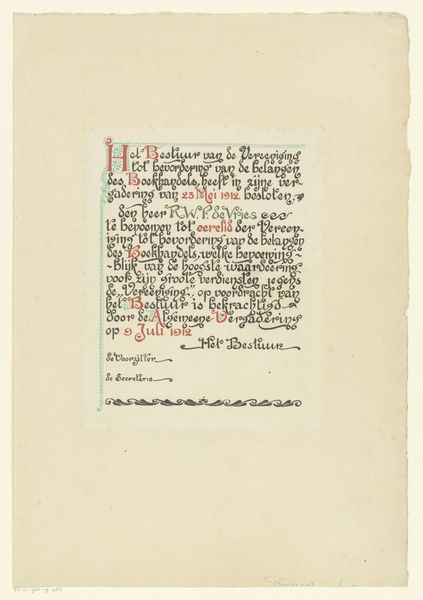 Het Bestuur van de Vereeniging
tot bevordering van de belangen
des Boekhandels, heeft in zijne ver-
gadering van 23 Mei 1912 besloten,
den heer R.W.P. de Vries
te benoemen tot eerelid der Vereen-
iging tot bevordering van de belangen
des Boekhandels, welke benoeming
blijk van de hoogste waardeering
voor zijn groote verdiensten jegens
de „Vereeniging", op voordracht van
het Bestuur is bekrachtigd
door de Algemeene Vergadering
op 9 Juli 1912
Het Bestuur
de Voorzitter
de Secretaris